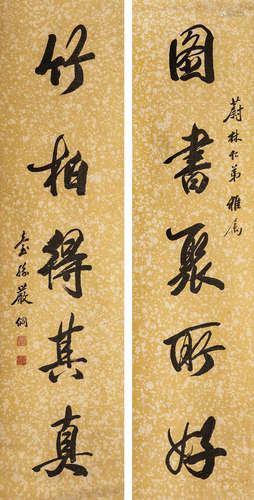 圖書聚所好
蔚林仁弟雅屬
竹柏得其真
嚴